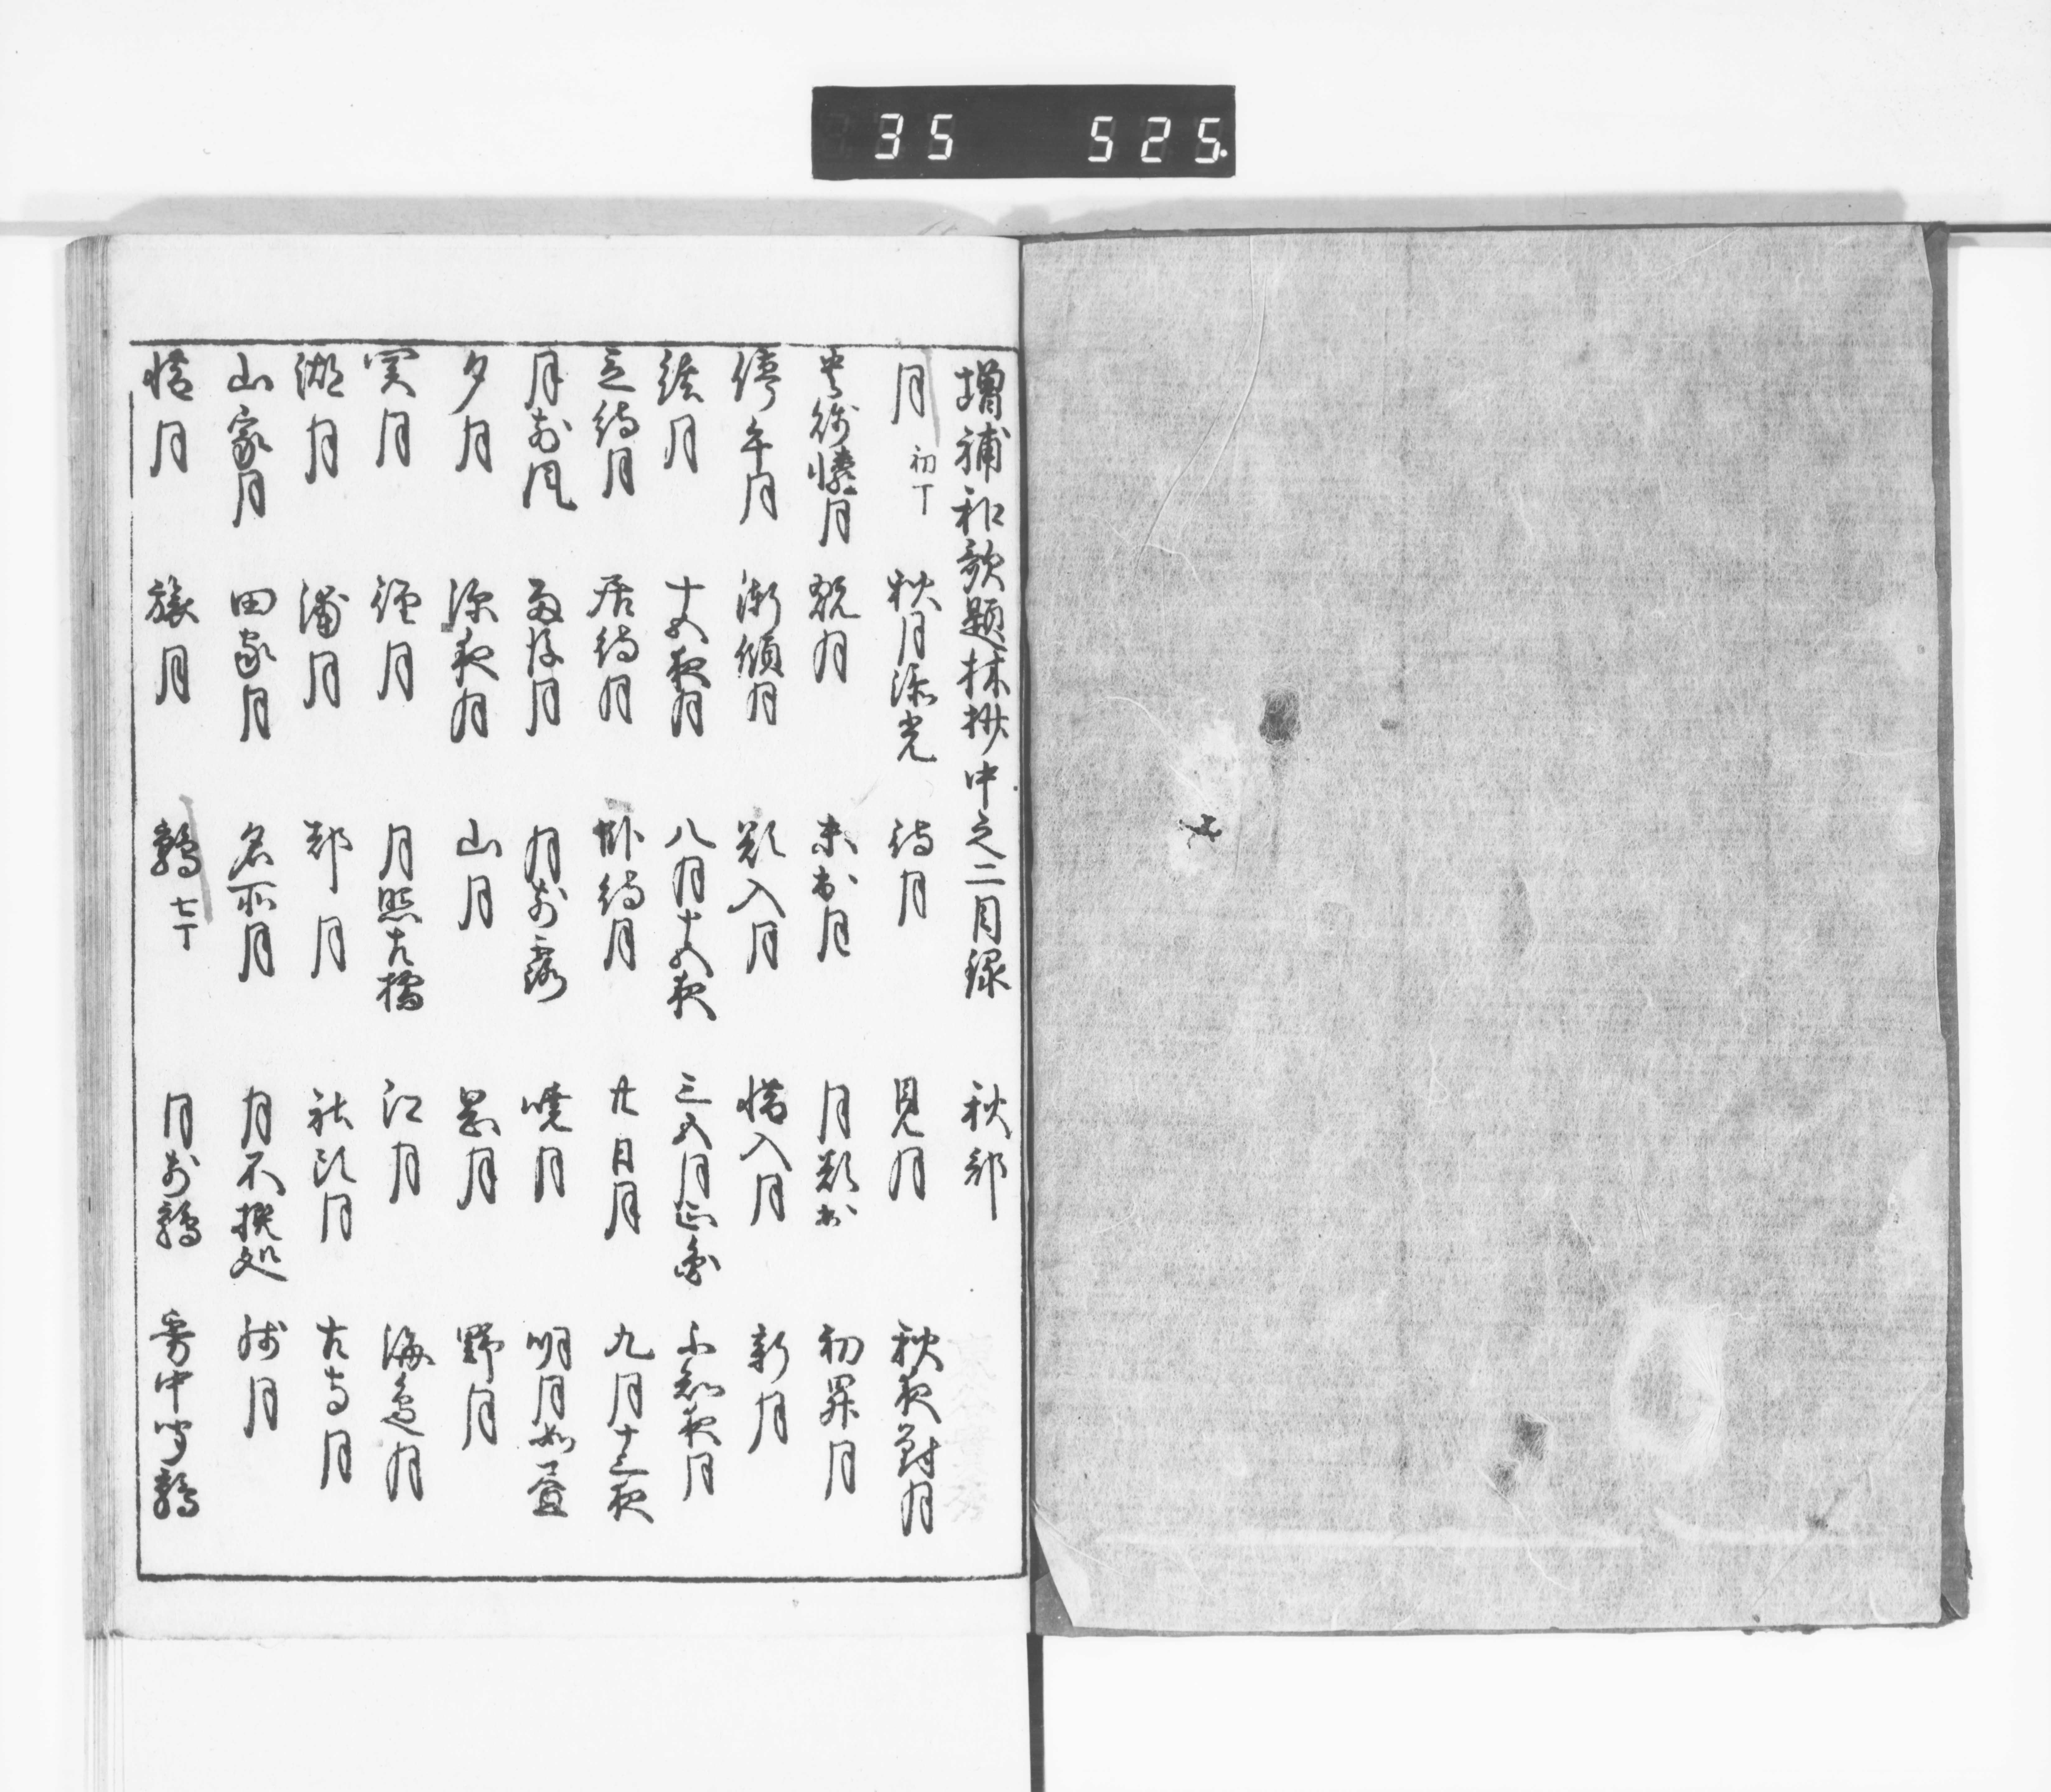 35 525
増補和歌題林抄中之二目録 秋部
月 初丁 秋月添光 待月 見月 秋夜対月
翫月 未出月 月欲出 初昇月
停午月 漸傾月 欲入月 惜入月 新月
十五夜月 八月十五夜 三五月正円 不知夜月
立待月 居待月 臥待月 廿日月 九月十三夜
月前風 雨後月 月前露 暁月 明月如昼
夕月 深夜月 山月 嶺月 野月
関月 径月 月照古橋 江月 海辺月
湖月 浦月 都月 社頭月 古寺月
山家月 田家月 名所月 月不撰処 残月
惜月 旅月 鶉 七丁 月前鶉 霧中聞鶉